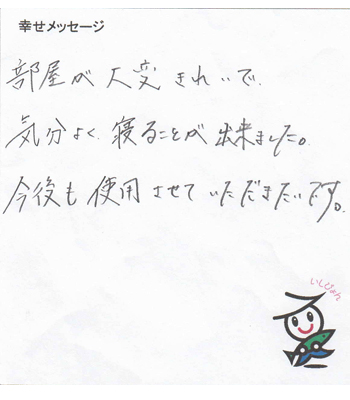 幸せメッセージ
部屋が大変きれいで、
気分よく、寝ることが出来ました。
今後も使用させていただきたいです。
いしぴょん